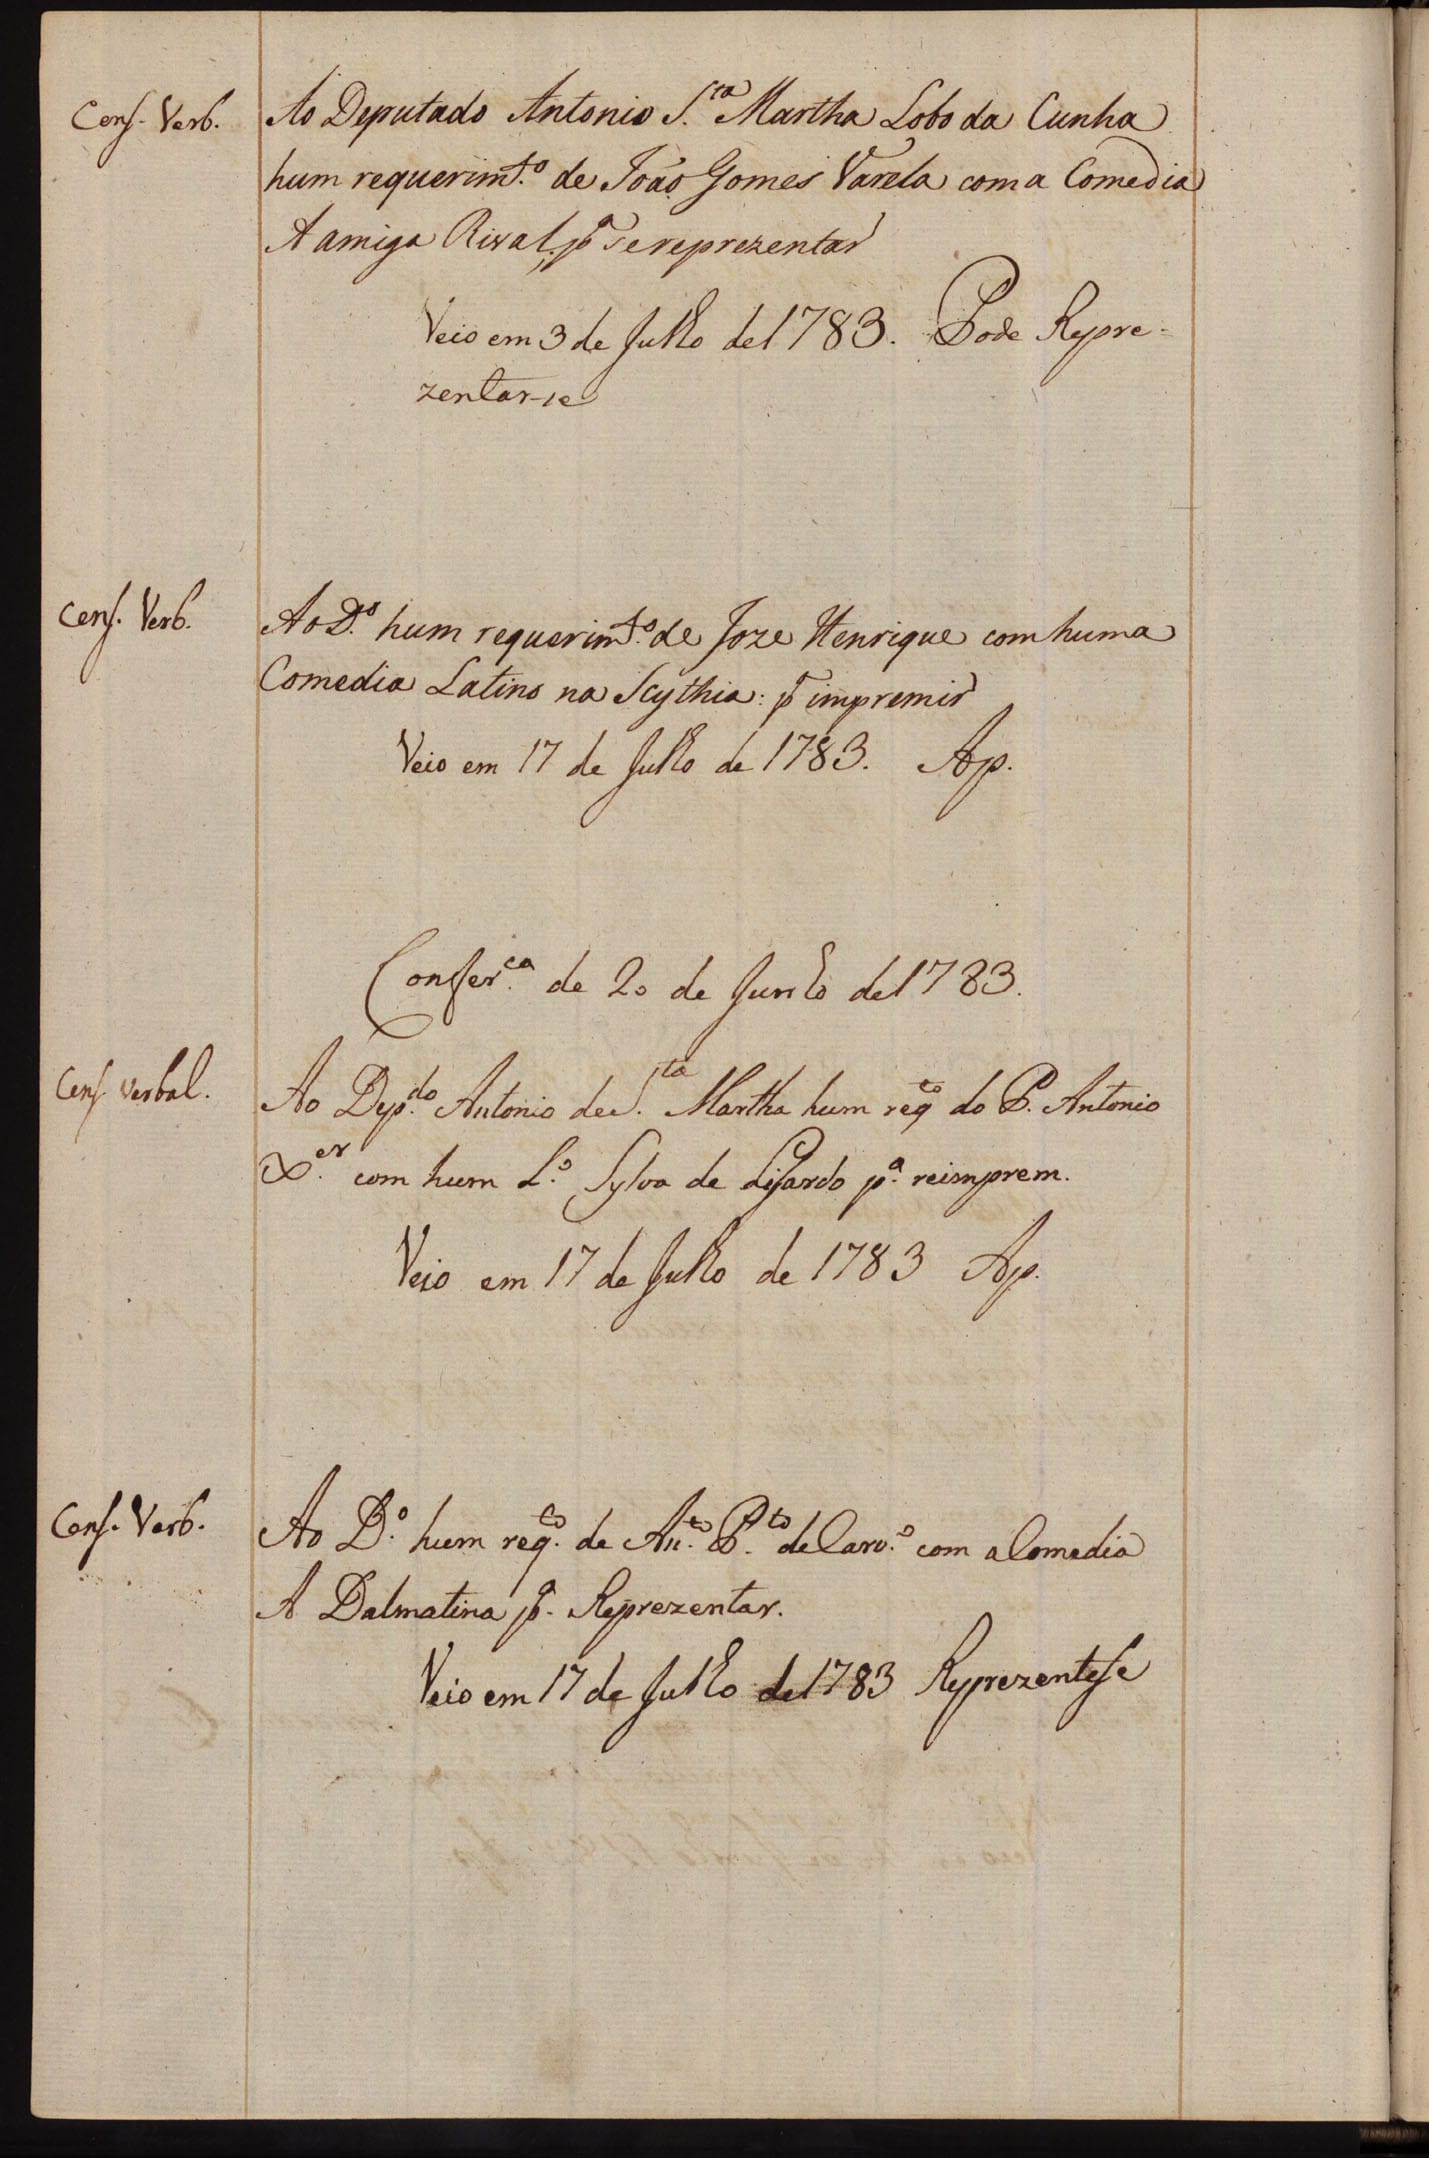 Cens. Verb.
Ao Deputado Antonio S.ta Martha Lobo da Cunha
hum requerim.to de João Gomes Varela com a Comedia
A amiga Rival; p.a se reprezentar
Veio em 3 de Julho de 1783. Pode Repre-
zentar-se
Cens. Verb.
Ao D.o hum requerim.to de Joze Henrique com huma
Comedia Latino na Scythia: p.a impremir
Veio em 17 de Julho de 1783. Ap.
Confer.ca de 20 de Junho de 1783.
Cens. Verbal.
Ao Dep.do Antonio de S.ta Martha hum req.to do P. Antonio
X.er com hum L.o Sylva de Lisardo p.a reimprem.
Veio em 17 de Julho de 1783 Ap.
Cens. Verb.
Ao D.o hum req.to de An.to P.to de Carv.o com a Comedia
A Dalmatina p.a Reprezentar.
Veio em 17 de Julho de 1783 Reprezentese